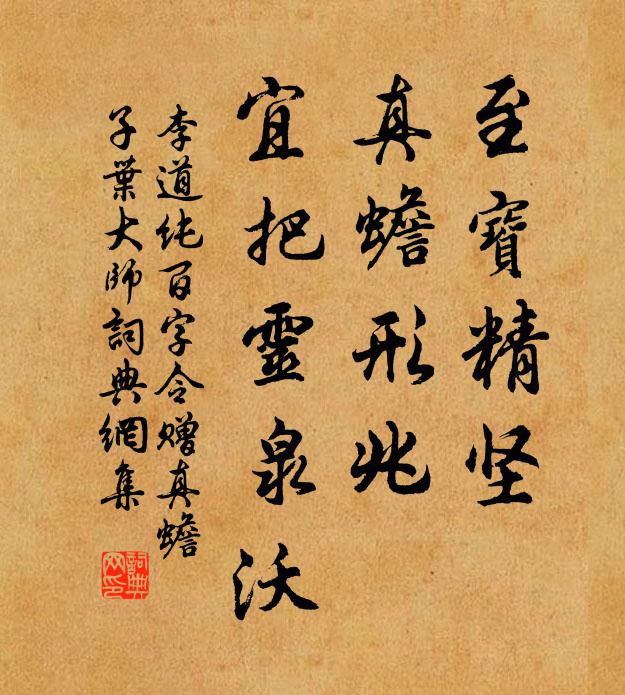 至寶精坚
真蟾形兆
宜把靈泉沃
李道纯百字令赠真蟾
子葉大师詞典網集
詞典
网印